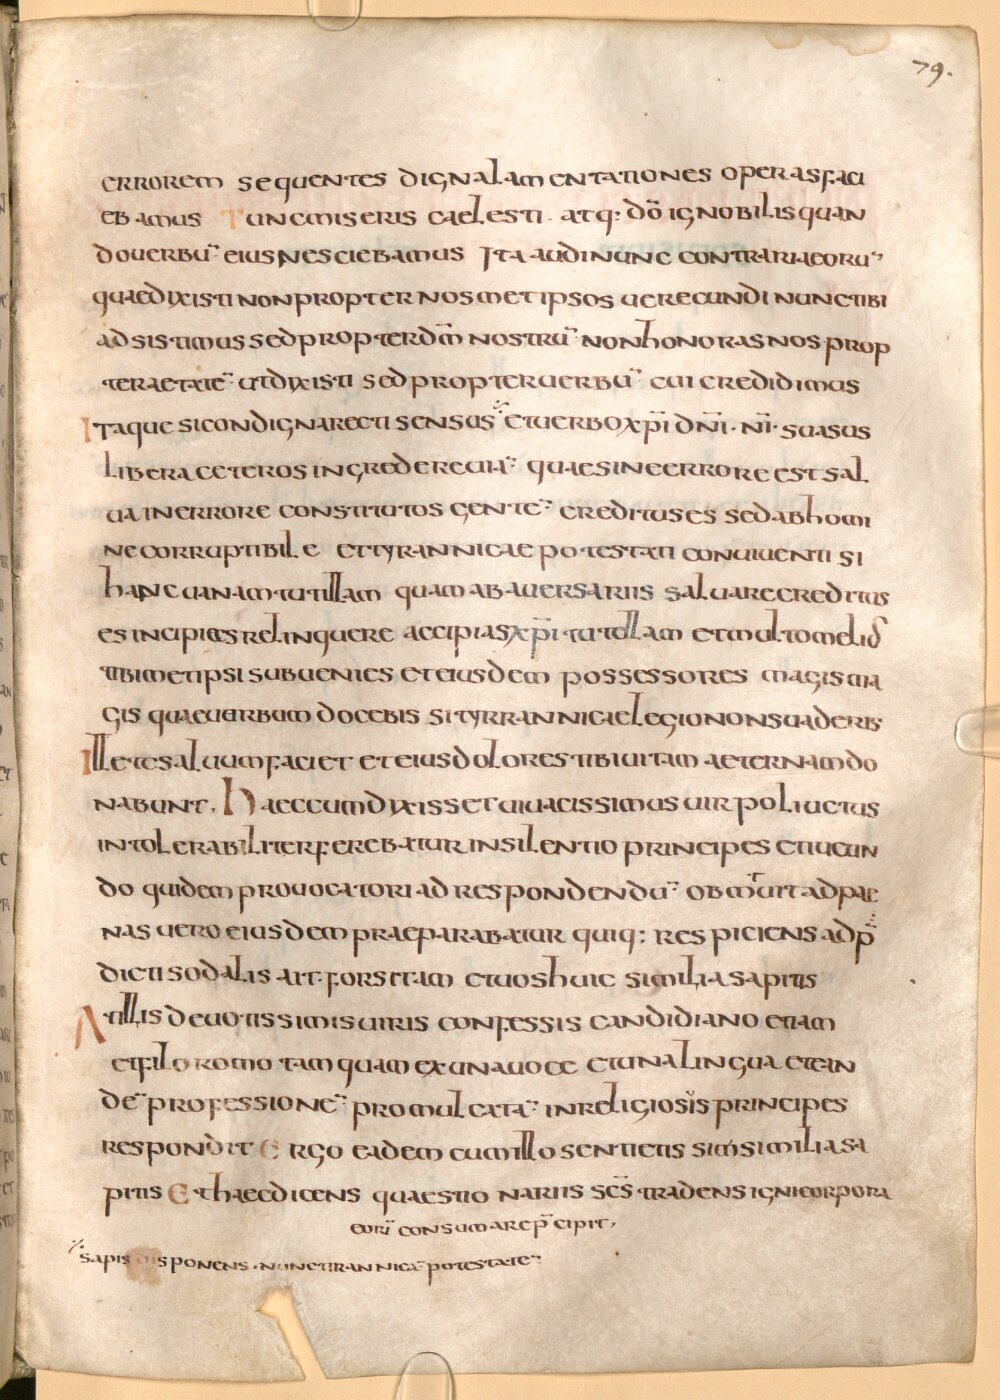 79.
errorem sequentes digna lamentationes operasfaci
ebamus Tunc miseris caelesti. atq; dō ignobilis quan
do uerbū eius nesciebamus Ita audi nunc contraria eorū
quae dixisti non propter nosmetipsos uerecundi nunc tibi
adsistimus sed propter dm̄ nostrū non honoras nos prop
ter aetatē ut dixisti sed propter uerbū cui credidimus
Itaque si condigna recti sensus et uerbo xp̄i dn̄i. n̄i. suasus
libera ceteros ingredere uiā quae sine errore est sal
ua in errore constitutos gentē creditus es sed ab homi
ne corruptibile et tyrannicae potestati conuiuenti si
hanc uanam tutillam quam ab auersariis saluare creditus
es incipies relinquere accipias xp̄i tutellam et multo melius
tibimetipsi subuenies et eiusdem possessores magis ma
gis quae uerbum docebis si tyrrannicae legio non suaderis
Ille te saluum faciet et eius dolores tibi uitam aeternam do
nabunt, Haec cum dixisset uiuacissimus uir poliuctus
intolerabiliter ferebatur in silentio principes et iucun
do quidem prouocatori ad respondendū obmutuit ad pae
nas uero eiusdem praeparabatur quiq; respiciens ad p̄
dicti sodalis ait. forsitam et uos huic similia sapitis
At illis deuotissimis uiris confessis candidiano etiam
et filoromo tamquam ex una uoce et una lingua et ean
dē professionē promulcatā inreligiosis principes
respondit Ergo eadem cum illo sentietis sim similia sa
pitis Et haec dicens quaestionariis scs̄ tradens igni corpora
eorū consumare p̄cipit,
sapis disponens. nunc tirannicā potestatē